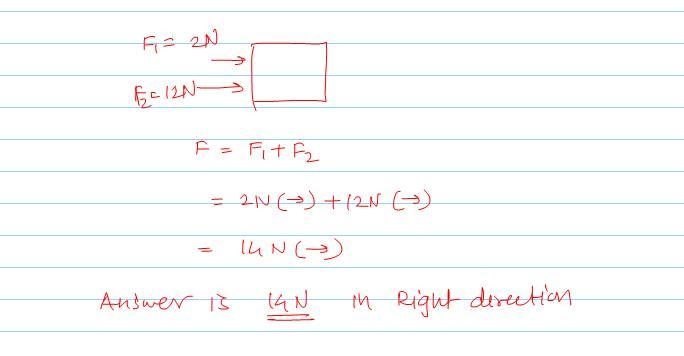 F₁ = 2N
F₂ = 12N
F = F₁ + F₂
= 2N (→) + 12N (→)
= 14 N (→)
Answer is 14N in Right direction